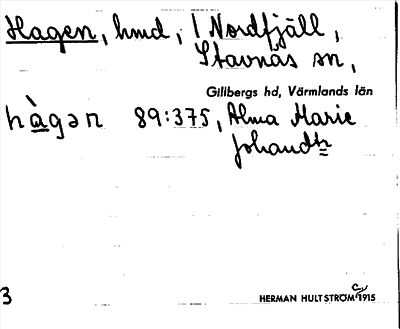 Hagen, hmd, i Nordfjäll,
Stavnäs sn,
Gillbergs hd, Värmlands län
hàgən 89:375, Alma Marie
Johandtr
3
HERMAN HULTSTRÖM 1915